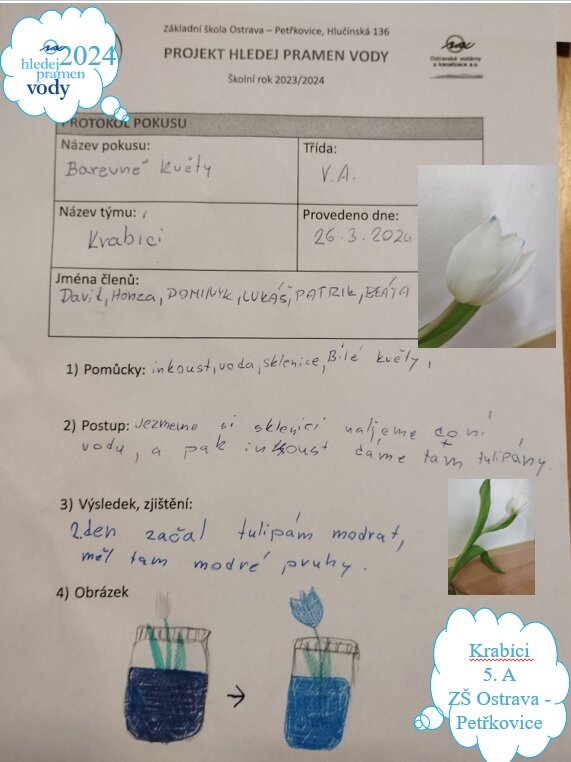 2024
hledej
pramen
vody
Základní škola Ostrava – Petřkovice, Hlučínská 136
PROJEKT HLEDEJ PRAMEN VODY
Školní rok 2023/2024
Ostravské vodárny
a kanalizace a.s.
PROTOKOL POKUSU
Název pokusu:
Barevné květy
Třída:
V.A.
Název týmu:
Krabíci
Provedeno dne:
26.3.2024
Jména členů:
David, Honza, DOMINYK, LUKÁŠ, PATRIK, BEÁTA
1) Pomůcky: inkoust, voda, sklenice, Bílé květy,
2) Postup: vezmeme si sklenici naljeme do ní
vody, a pak inkoust dáme tam tulipány.
3) Výsledek, zjištění:
2.den začal tulipám modrat,
měl tam modré pruhy.
4) Obrázek
Krabíci
5. A
ZŠ Ostrava -
Petřkovice